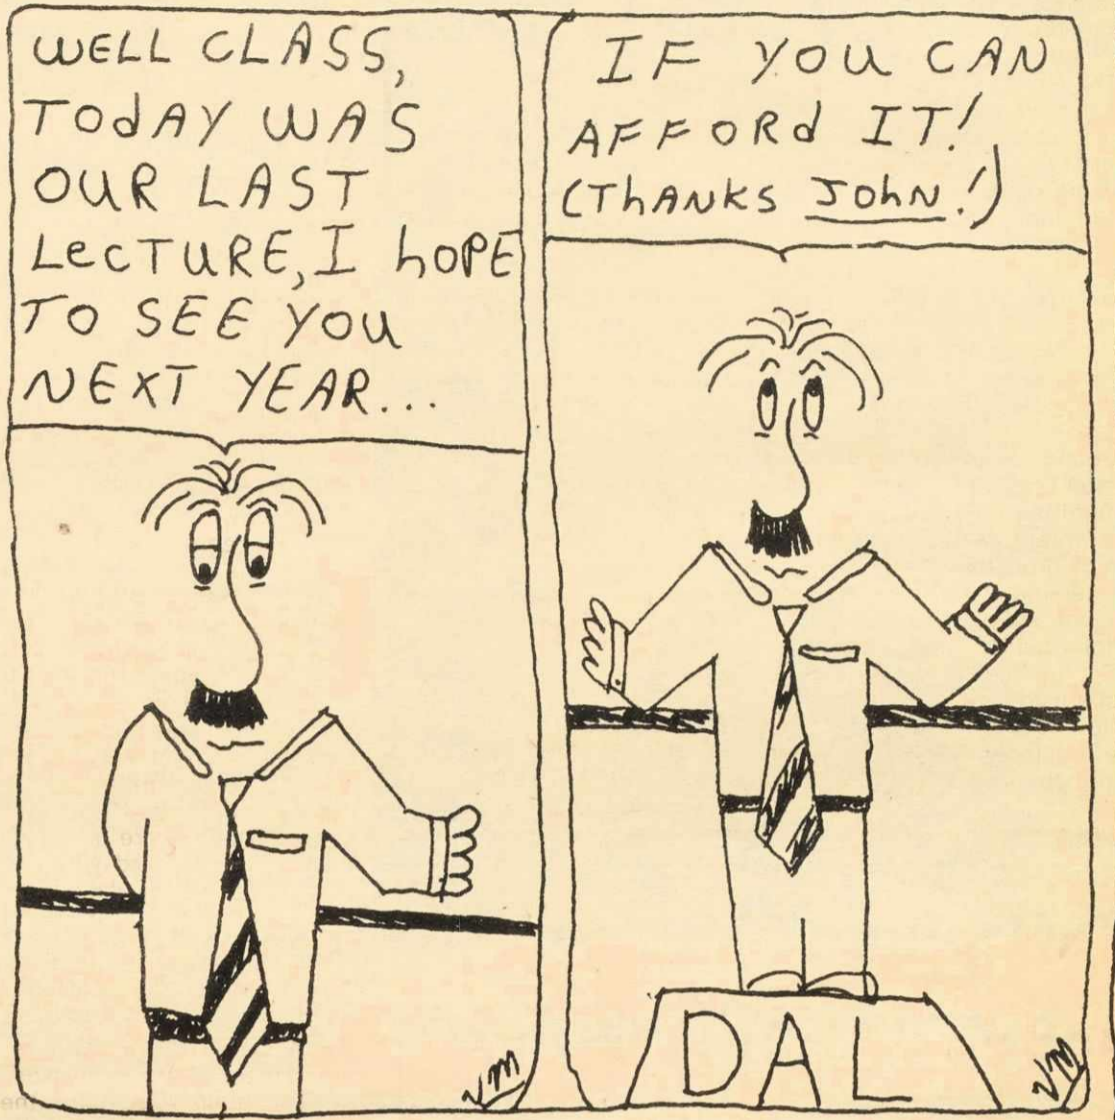 WELL CLASS,
TOdAY WAS
OUR LAST
LeCTURE, I hOPE
TO SEE YOU
NEXT YEAR...
IF YOU CAN
AFFORd IT!
(ThANKS JOhN!)
VM
DAL
VM